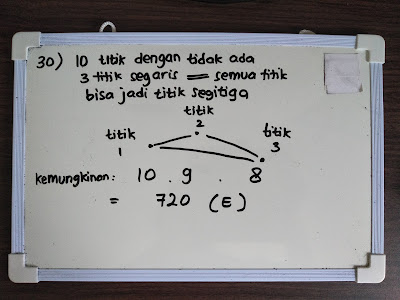 30) 10 titik dengan tidak ada
3 titik segaris = semua titik
bisa jadi titik segitiga
titik
2
titik
1
titik
3
kemungkinan: 10 . 9 . 8
= 720 (E)